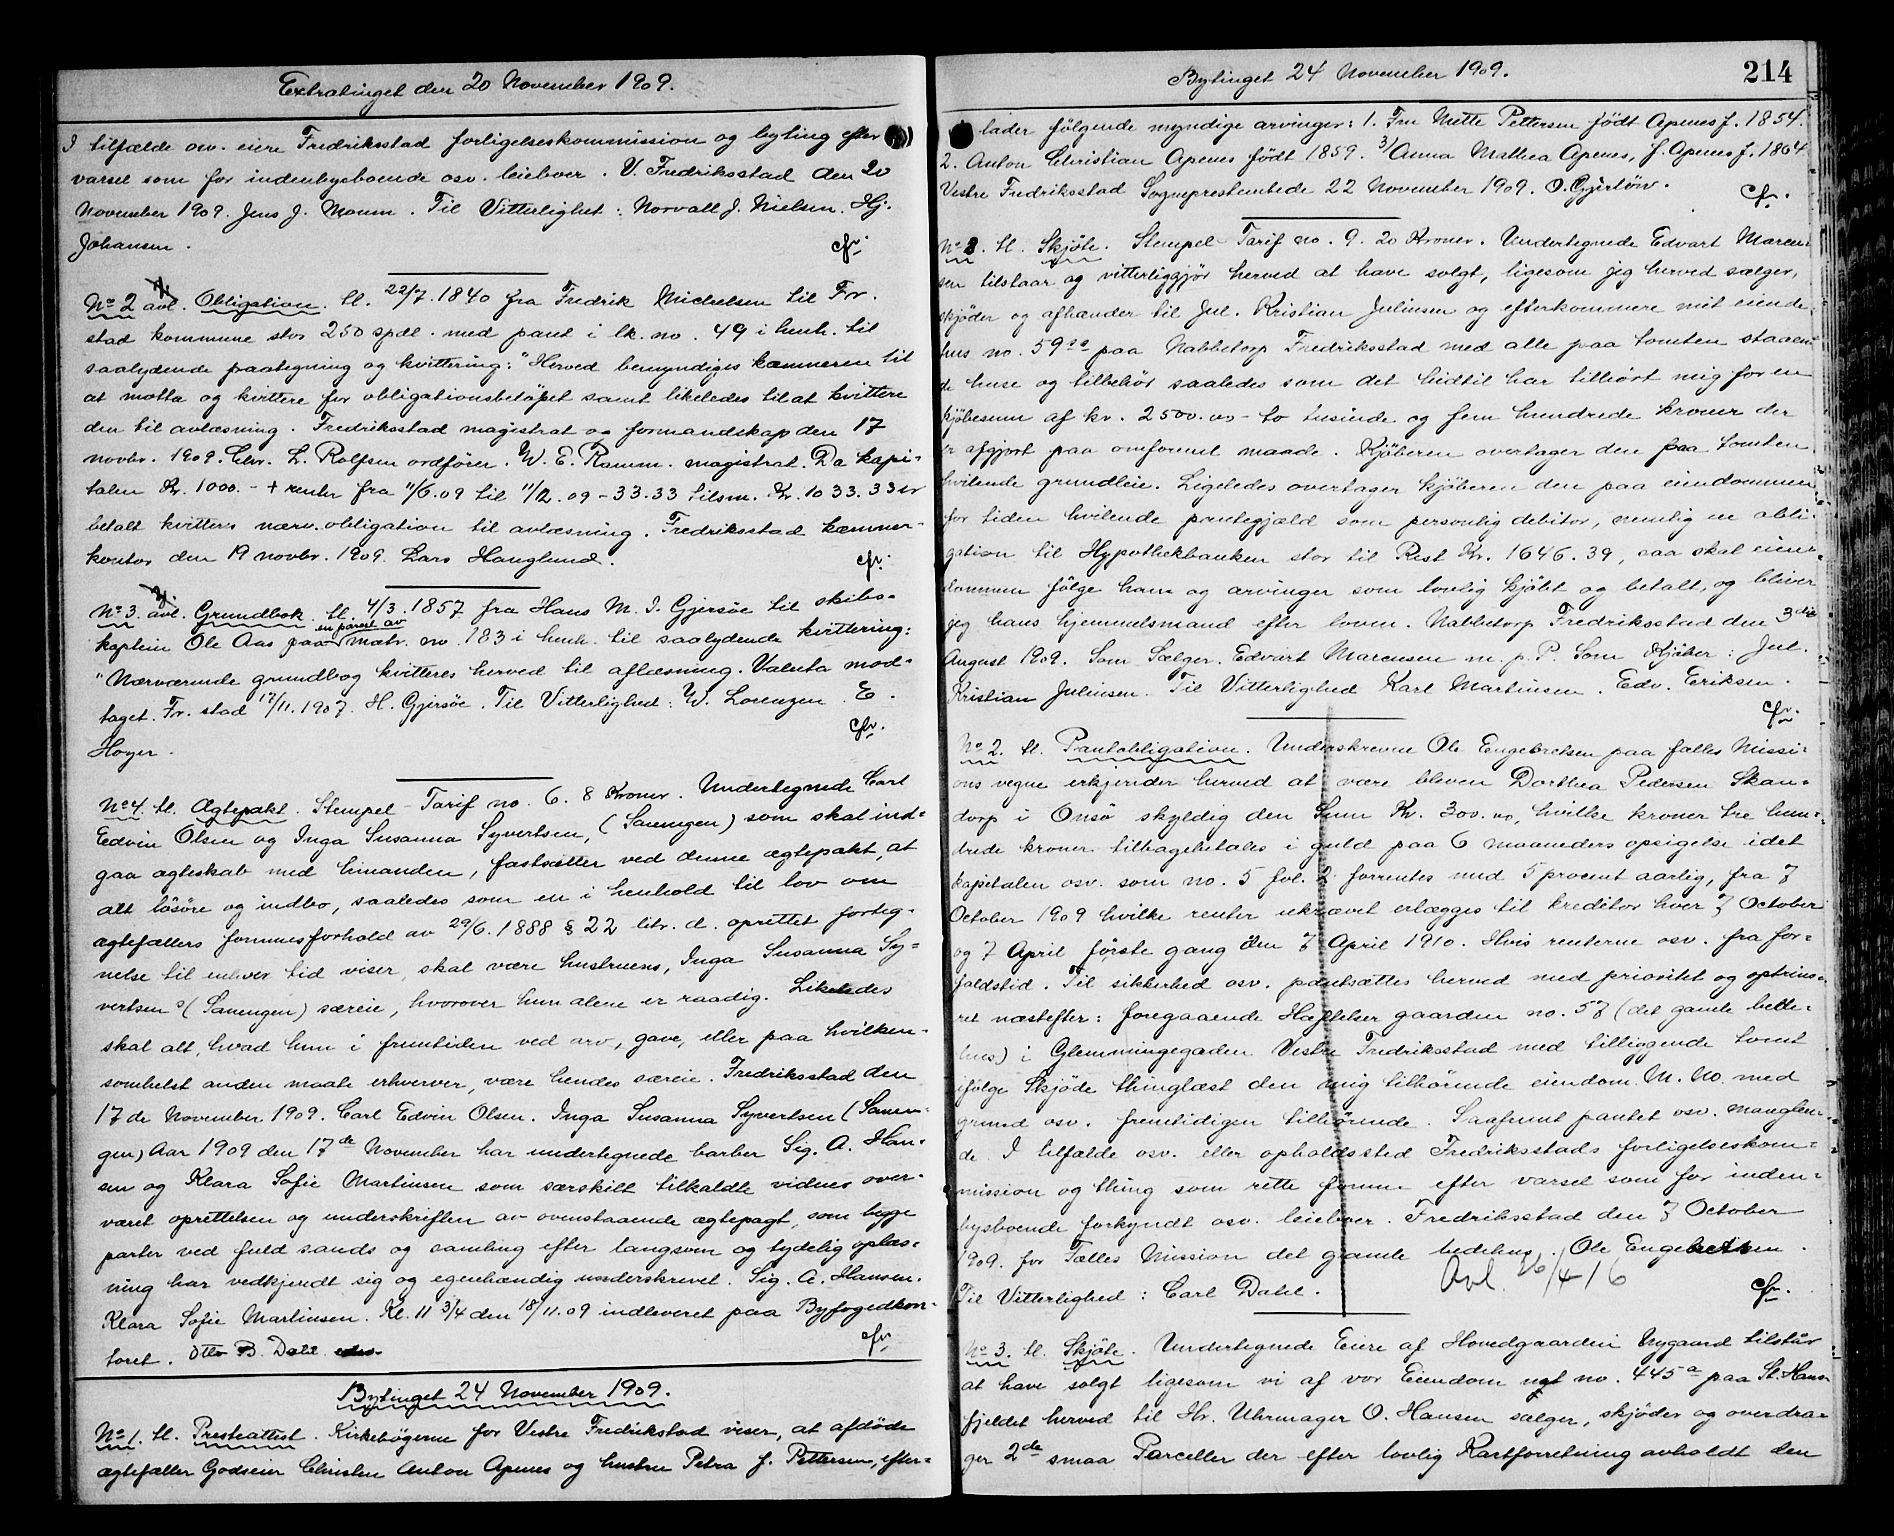 Extratinget den 20 November 1909.
I tilfælde osv. eiere Fredriksstad forligelseskommission og byting efter
varsel som for indenbysboende osv. leieboer. V. Fredriksstad den 20
November 1909. Jens J. Moum. Til Vitterlighet: Norvall J. Nielsen. Hj.
Johansen. cfr.
No 2 avl. Obligation. tl. 22/7.1840 fra Fredrik Michelsen til Fr.
stad kommune stor 250 spdl. med pant i lk. no. 49 i henh. til
saalydende paategning og kvittering: "Herved bemyndiges kæmneren til
at motta og kvittere for obligationsbeløpet samt likeledes til at kvittere
den til avlæsning. Fredriksstad magistrat og formandskap den 17
novbr. 1909. Chr. L. Rolfsen ordfører. W. E. Ramm. magistrat. Da kapi-
talen Kr. 1000.- + renter fra 11/6.09 til 11/12.09 - 33.33 tilsm. Kr. 1033.33 er
betalt kvitteres nærv. obligation til avlæsning. Fredriksstad kæmner-
kontor den 19 novbr. 1909. Lars Hauglund. cfr.
No 3. avl. Grundbok. tl. 4/3.1857 fra Hans M. I. Gjersøe til skibs-
en parcel av
kaptein Ole Aas paa matr. no. 183 i henh. til saalydende kvittering:
"Nærværende grundbog kvitteres herved til aflæsning. Valuta mod-
taget. Fr.stad 17/11.1907. H. Gjersøe. Til Vitterlighed: W. Lorenzen. E.
Hoyer. cfr.
No 4. tl. Ægtepakt. Stempel-Tarif no. 6. 8 Kroner. Undertegnede Carl
Edvin Olsen og Inga Susanna Syvertsen, (Sanengen) som skal ind-
gaa ægteskab med hinanden, fastsætter ved denne ægtepakt, at
alt løsøre og indbo, saaledes som en i henhold til lov om
ægtefællers formuesforhold av 29/6.1888 § 22 litr. d. oprettet forteg-
nelse til enhver tid viser, skal være hustruens, Inga Susanna Sy-
vertsens (Sanengen) særeie, hvorover hun alene er raadig. Likeledes
skal alt, hvad hun i fremtiden ved arv, gave, eller paa hvilken-
somhelst anden maate erhverver, være hendes særeie. Fredriksstad den
17de November 1909. Carl Edvin Olsen. Inga Susanna Syvertsen (Sanen-
gen) Aar 1909 den 17de November har undertegnede barber Sig. A. Han-
sen og Klara Sofie Martinsen som særskilt tilkaldte vidner over-
været oprettelsen og underskriften av ovenstaaende ægtepagt, som begge
parter ved fuld sands og samling efter langsom og tydelig oplæs-
ning har vedkjendt sig og egenhændig underskrevet. Sig. A. Hansen.
Klara Sofie Martinsen. Kl. 11 3/4 den 18/11.09 indleveret paa Byfogedkon-
toret. Otto B. Dahl cfr.
Bytinget 24 November 1909.
No 1. tl. Presteattest. Kirkebøgerne for Vestre Fredrikstad viser, at afdøde
ægtefæller Godseier Christen Anton Apenes og hustru Petra f. Pettersen, efter-
Bytinget 24 November 1909. 214
lader følgende myndige arvinger: 1. Fru Mette Pettersen født Apenes f. 1854.
2. Anton Christian Apenes født 1859. 3/ Anna Mathea Apenes, f. Apenes f. 1864
Vestre Fredriksstad Sogneprestembede 22 November 1909. O. Gjerløw. cfr.
No 2. tl. Skjøte. Stempel-Tarif no. 9. 20 Kroner. Undertegnede Edvart Marcu-
sen tilstaar og vitterliggjør herved at have solgt, ligesom jeg herved sælger,
skjøder og afhænder til Jul. Kristian Juliusen og efterkommere mit eiende
hus no. 59aa paa Nabbetorp Fredriksstad med alle paa tomten staaen-
de huse og tilbehør saaledes som det hidtil har tilhørt mig for en
kjøbesum af kr. 2500.00 - to tusinde og fem hundrede kroner der
er afgjort paa omforenet maade. Kjøberen overtager den paa tomten
hvilende grundleie. Ligeledes overtager kjøberen den paa eiendommen
for tiden hvilende pantegjæld som personlig debitor, nemlig en obli-
gation til Hypothekbanken stor til Rest Kr. 1646.39, saa skal eien-
dommen følge ham og arvinger som lovlig kjøbt og betalt, og bliver
jeg hans hjemmelsmand efter loven. Nabbetorp Fredriksstad den 3die
August 1909. Som Sælger. Edvart Marcusen m. p. P. Som Kjøber: Jul.
Kristian Juliusen. Til Vitterlighed Karl Martinsen. Edv. Eriksen.
cfr.
No 2. tl. Pantobligation. Underskrevne Ole Engebretsen paa fælles Missi-
ons vegne erkjender herved at være bleven Dorthea Pedersen Skan-
dorp i Onsø skyldig den Sum Kr. 300.00, hvilke kroner tre hun-
drede kroner tilbagebetales i guld paa 6 maaneders opsigelse idet
kapitalen osv. som no. 5 fol. 2 forrentes med 5 procent aarlig, fra 7
October 1909 hvilke renter ukrævet erlægges til kreditor hver 7 October
og 7 April første gang den 7 April 1910. Hvis renterne osv. fra for-
faldstid. Til sikkerhed osv. pantsættes herved med prioritet og optrins-
ret næstefter: foregaaende Hæftelser gaarden no. 57 (det gamle bede-
hus) i Glemmingegaden Vestre Fredriksstad med tilliggende tomt
ifølge Skjøde thinglæst den mig tilhørende eiendom M. No. med
grund osv. fremtidigen tilhørende. Saafremt pantet osv. manglen-
de. I tilfælde osv. eller opholdssted Fredriksstads forligelseskom-
mission og thing som rette forum efter varsel som for inden-
bysboende forkyndt osv. leieboer. Fredriksstad den 7 October
1909. for Fælles Mission det gamle bedehus. Ole Engebretsen.
Avl. 26/4 16
Til Vitterlighed: Carl Dahl. cfr.
No 3. tl. Skjøte. Undertegnede Eiere af Hovedgaarden Nygaard tilstår
at have solgt ligesom vi af vor Eiendom no. 445a paa St. Hans-
fjeldet herved til Hr. Uhrmager O. Hansen sælger, skjøder og overdra-
ger 2de smaa Parceller der efter lovlig Kartforretning avholdt den